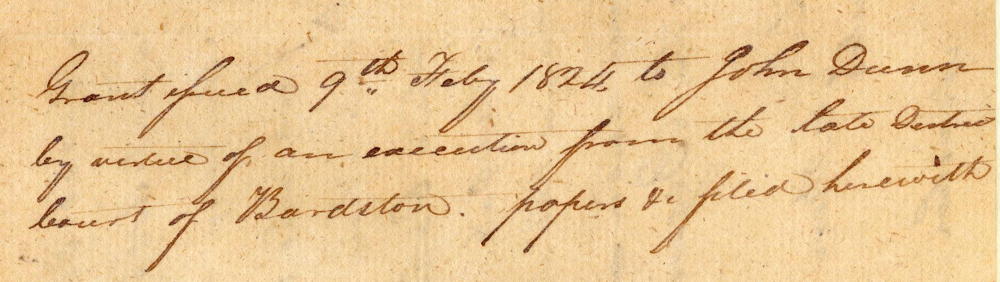 Grant issued 9th Feby 1824 to John Dunn
by virtue of an execution from the late
Court of Bardston. papers &c filed herewith